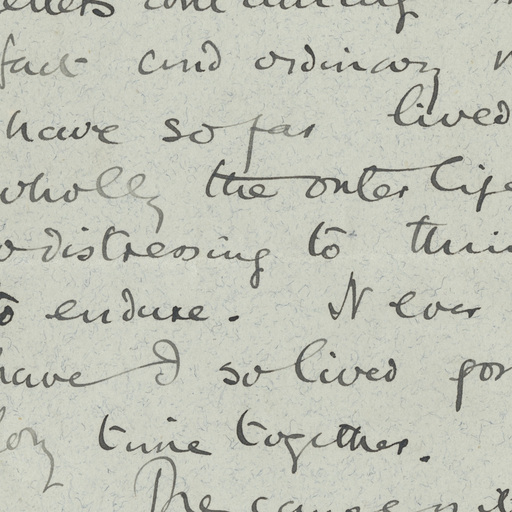 fact and ordinary
have so far lived
wholly the outer life
distressing to
to endure. Never
have I so lived for
time together.
The cause